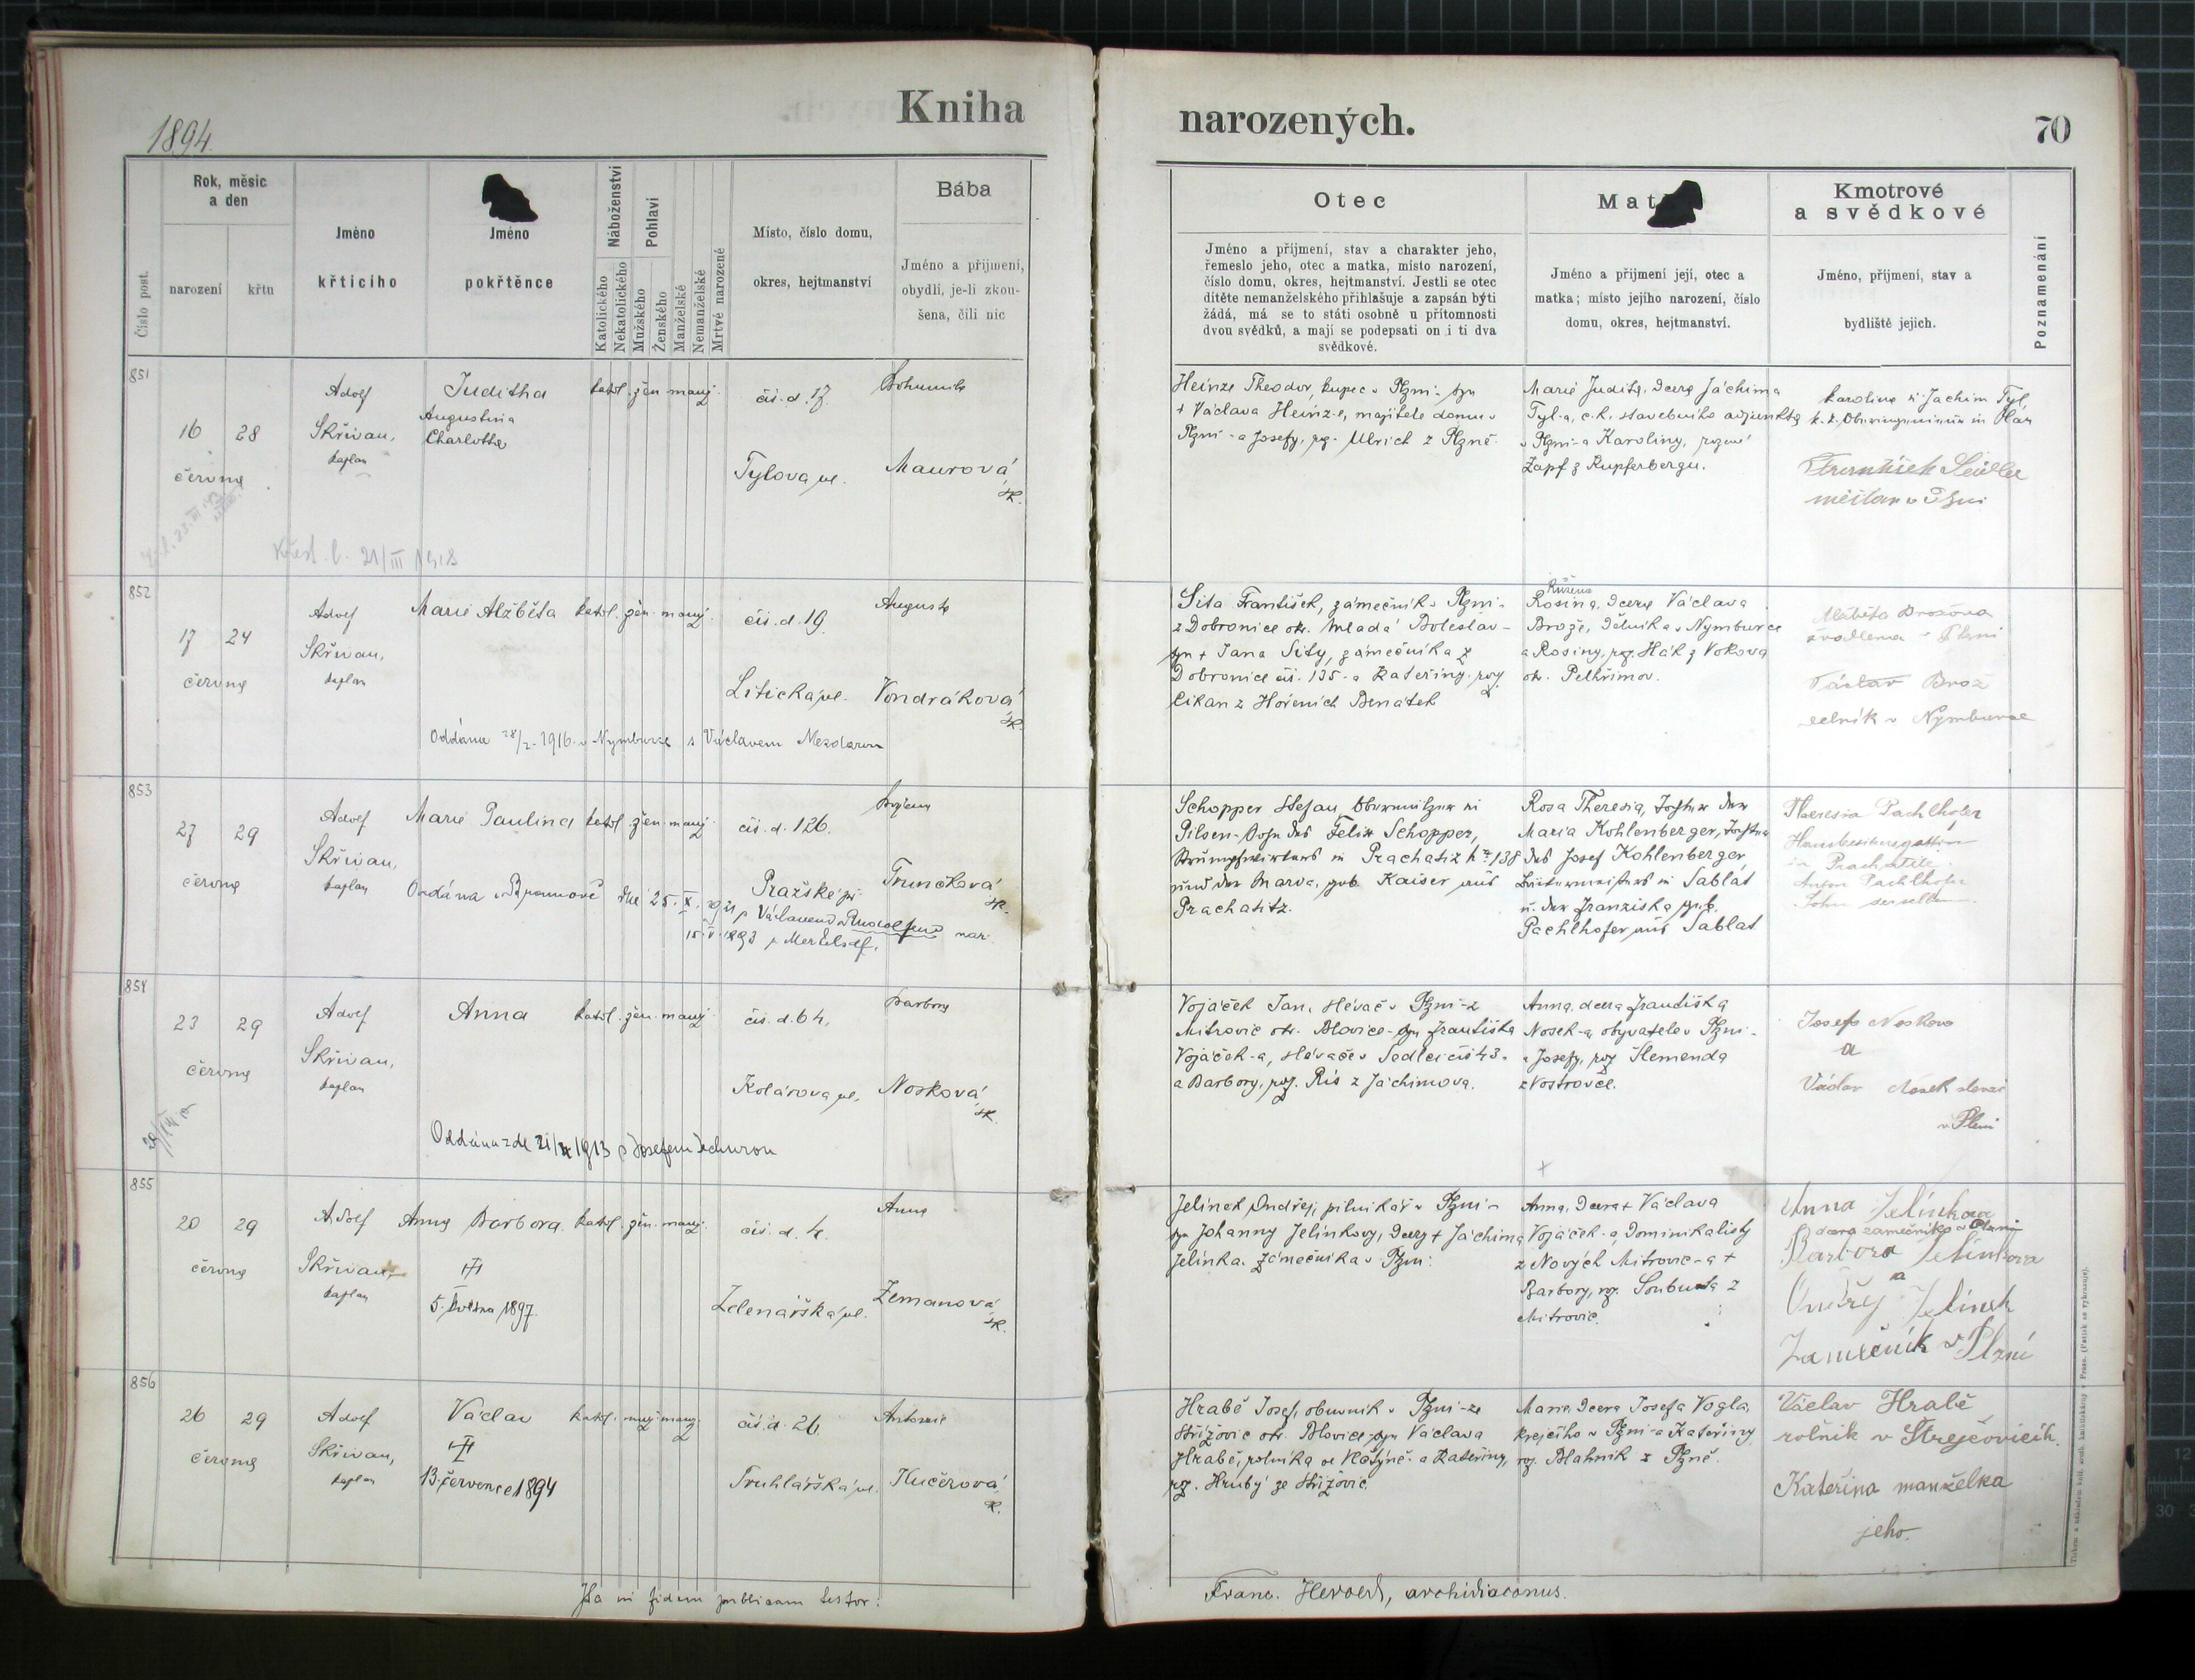 Kniha
1894.
Číslo post.
Rok, měsíc
a den
narození
křtu
Jméno
křtícího
Jméno
pokřtěnce
Náboženství
Katolického
Nekatolického
Pohlaví
Mužského
Ženského
Manželské
Nemanželské
Mrtvé narozené
Místo, číslo domu,
okres, hejtmanství
Bába
Jméno a příjmení,
obydlí, je-li zkou-
šena, čili nic
851
16 28
června
Adolf
Skřivan,
kaplan
Juditha
Augustina
Charlotta
katol. žen. manž.
čís. d. 17.
Tylova ul.
Bohumila
Maurová
zk.
Křest. l. 21/III 1918
852
17 24
června
Adolf
Skřivan,
kaplan
Marie Alžběta
katol. žen. manž.
čís. d. 19.
Litická ul.
Augusta
Vondráková
zk.
Oddána 28/2. 1916 v Nymburce s Václavem
853
27 29
června
Adolf
Skřivan,
kaplan
Marie Paulina
katol. žen. manž.
čís. d. 126.
Pražské př.
zk.
Oddána v dne 25. X.
nar.
854
23 29
června
Adolf
Skřivan,
kaplan
Anna
katol. žen. manž.
čís. d. 64.
Kolárova ul.
Barbora
Nosková
zk.
Oddána dne 1913 s Josefem
855
20 29
června
Adolf
Skřivan,
kaplan
Anna Barbora
5. května 1897.
katol. žen. manž.
čís. d. 4.
Zelenářská ul.
Anna
Zemanová
zk.
856
26 29
června
Adolf
Skřivan,
kaplan
Václav
13. července 1894
katol. muž. manž.
čís. d. 26.
Truhlářská ul.
Antonie
Kučerová
zk.
Ita in fidem publicam testor:
narozených.
70
Otec
Jméno a příjmení, stav a charakter jeho,
řemeslo jeho, otec a matka, místo narození,
číslo domu, okres, hejtmanství. Jestli se otec
dítěte nemanželského přihlašuje a zapsán býti
žádá, má se to státi osobně u přítomnosti
dvou svědků, a mají se podepsati on i ti dva
svědkové.
Mat
Jméno a příjmení její, otec a
matka; místo jejího narození, číslo
domu, okres, hejtmanství.
Kmotrové
a svědkové
Jméno, příjmení, stav a
bydliště jejich.
Poznamenání
Heinze Theodor, kupec v Plzni - syn
+ Václava Heinz-e, majitele domu v
Plzni - a Josefy, roz. Ulrich z Plzně.
Marie Judita, dcera Jáchima
Tyl-a, c. k. stavebního adjunkta
v Plzni - a Karoliny, rozené
Zapf z Kupferbergu.
Karolina u. Jachim Tyl,
František Seidler
měšťan v Plzni
Sita František, zámečník v Plzni -
z Dobronice okr. Mladá Boleslav -
syn + Jana Sity, zámečníka z
Dobronice čís. 135 - a Kateřiny roz.
Cikan z Hořeních Benátek
Růžena
Rosina, dcera Václava
Brože, dělníka v Nymburce
a Rosiny, roz. Hák z Vokova
okr. Pelhřimov.
Alžběta Brožova
švadlena v Plzni
Václav Brož
dělník v Nymburce
Schopper Stefan, in
Pilsen - Sohn des Felix Schopper,
in Prachatitz No 138
und der Maria, geb. Kaiser aus
Prachatitz.
Rosa Theresia, Tochter der
Maria Kohlenberger, Tochter
des Josef Kohlenberger,
in Sablat
u. der Franziska geb.
Pachlhofer aus Sablat
Theresia Pachlhofer
Hausbesitzersgattin
in Prachatitz
Anton Pachlhofer
Sohn derselben
Vojáček Jan, slévač v Plzni - z
Mitrovic okr. Blovice - syn Františka
Vojáček-a, slévače v Sedlci čís 43 -
a Barbory, roz. Ris z Jáchimova.
Anna, dcera Františka
Nosek-a, obyvatele v Plzni -
a Josefy, roz. Slemenda
z Vostrovče.
Josefa Noskova
a
Václav Nosek slevač
v Plzni
Jelínek Ondřej, pilnikář v Plzni -
syn Johanny Jelínkovy, dcery + Jáchima
Jelínka, zámečníka v Plzni.
Anna, dcera + Václava
Vojáček-a, Dominikalisty
z Nových Mitrovic - a +
Barbory, roz. z
Mitrovic.
Anna Jelínkova
dcera zamečnika v Plzni
Barbora Jelínkova
a
Ondřej Jelínek
Zamečník v Plzni
Hrabě Josef, obuvník v Plzni - ze
Střížovic okr. Blovice - syn Václava
Hrabě, rolníka ve - a Kateřiny,
roz. Hrubý ze Střížovic.
Marie, dcera Josefa Vogla,
krejčího v Plzni - a Kateřiny
roz. Blahnik z Plzně.
Václav Hrabě
rolník v Střejčovicích.
Kateřina manželka
jeho.
Franc. Herold, archidiaconus.